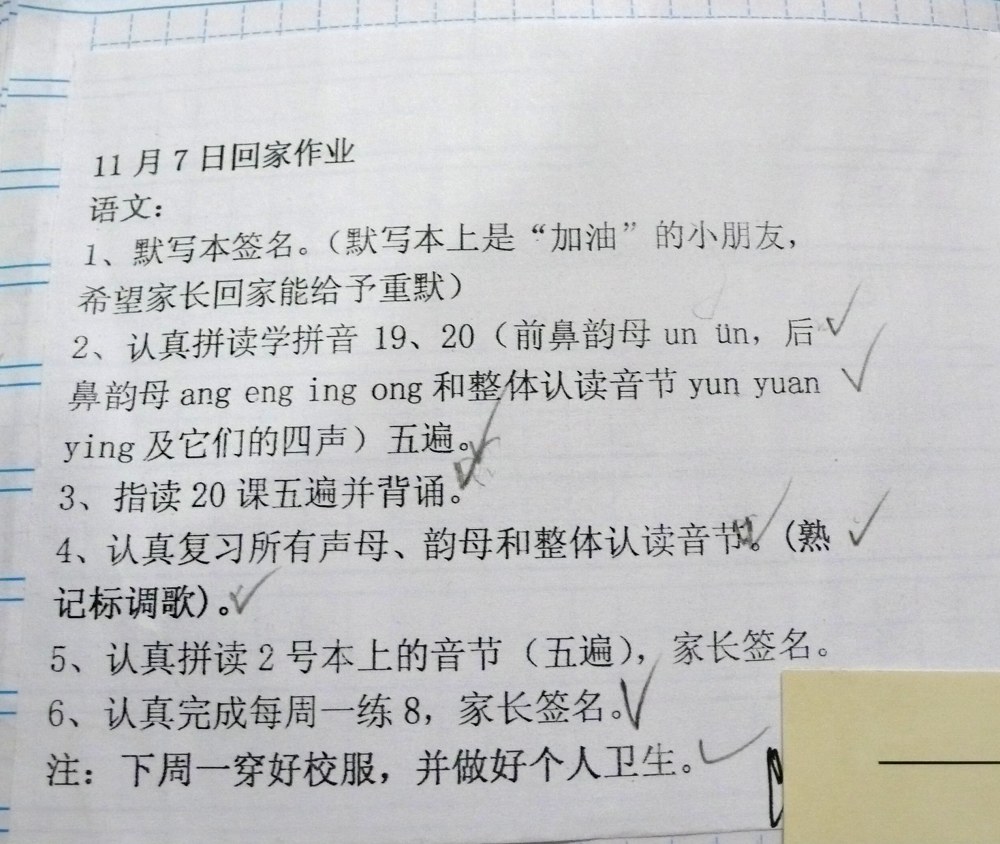 11月7日回家作业
语文：
1、默写本签名。（默写本上是“加油”的小朋友，
希望家长回家能给予重默）
2、认真拼读学拼音 19、20（前鼻韵母 un ün，后
鼻韵母 ang eng ing ong 和整体认读音节 yun yuan
ying 及它们的四声）五遍。
3、指读 20 课五遍并背诵。
4、认真复习所有声母、韵母和整体认读音节。(熟
记标调歌)。
5、认真拼读 2 号本上的音节（五遍），家长签名。
6、认真完成每周一练 8，家长签名。
注：下周一穿好校服，并做好个人卫生。